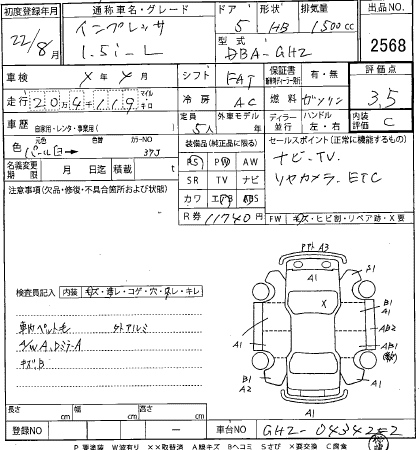 初度登録年月 通称車名・グレード ドア 形状 排気量 出品NO
22/8月 インプレッサ 1.5i-L 5 HB 1500cc 2568
型式 DBA-GH2
車検 X年X月 シフト FAT 保証書 有・無 評価点 3.5
走行 204119 マイル キロ 冷房 AC 燃料 ガソリン
車歴 自家用・レンタ・事業用( ) 定員 5人 外車モデル 年 ディーラー 並行 ハンドル 左・右 内装評価 C
色 元色 パール白 → 色替 カラーNO 37J
装備品(純正品に限る) セールスポイント(正常に機能するもの)
PS PW AW ナビ・TV
名義変更期限 月 日迄 積載 t SR TV ナビ リヤカメラ、ETC
注意事項(欠品・修復・不具合箇所および状態) カワ エアB ABS
R券 11740円 FW キズ・ヒビ割・リペア跡・X要
検査員記入 内装 キズ・汚レ・コゲ・穴・臭レ・キレ
車内ペット毛 外アルミ
A/W A、Dミラー A
キズ B
PタトA3
A1
A1
S1
A1
X
A1
B1
A1
A1
AB2
AB1
B1
A2
S1
A1
長さ cm 幅 cm 高さ cm
登録NO ー 車台NO GH2-043422
P 要塗装 W波有り XX取替済 A線キズ Bヘコミ Sさび X要交換 C腐食